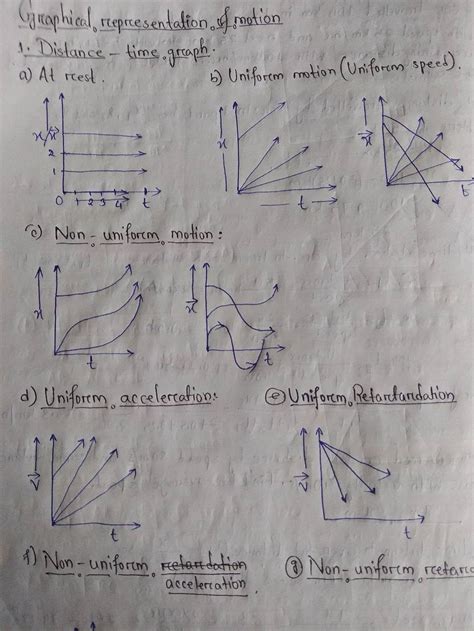 Graphical representation of motion
1. Distance - time graph.
a) At rest. b) Uniform motion (Uniform speed).
x/x⃗
2
1
0 1 2 3 4 t
x t
x⃗ t
c) Non-uniform motion:
x t
x⃗ t
d) Uniform acceleration: e) Uniform Retartandation
v⃗ t
v⃗ t
f) Non-uniform retardation acceleration g) Non-uniform retar